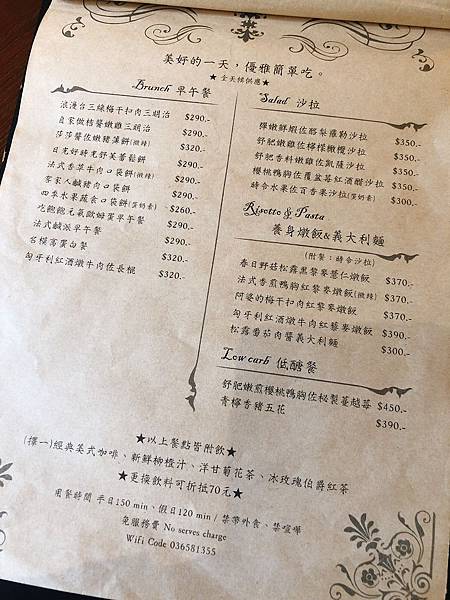 美好的一天，優雅簡單吃。
★ 全天候供應★
Brunch 早午餐
浪漫台三線梅干扣肉三明治 $290.-
自家做桔醬嫩雞三明治 $290.-
莎莎醬佐嫩豬薄餅(微辣) $320.-
日光好時光舒芙蕾鬆餅 $290.-
法式香草牛肉口袋餅(微辣) $290.-
客家人鹹豬肉口袋餅 $290.-
四季水果蔬食口袋餅(蛋奶素) $260.-
吃飽飽元氣歐姆蛋早午餐 $290.-
法式鹹派早午餐 $290.-
名模高蛋白餐 $320.-
匈牙利紅酒燉牛肉佐長棍 $320.-
Salad 沙拉
彈嫩鮮蝦佐酪梨蘿勒沙拉 $350.-
舒肥嫩雞佐檸檬橄欖沙拉 $350.-
舒肥香料嫩雞佐凱薩沙拉 $350.-
櫻桃鴨胸佐覆盆莓紅酒醋沙拉 $350.-
時令水果佐百香果沙拉(蛋奶素) $300.-
Risotto & Pasta
養身燉飯&義大利麵
(附餐：時令沙拉)
春日野菇松露黑藜麥薏仁燉飯 $370.-
法式香煎鴨胸紅藜麥燉飯(微辣) $370.-
阿婆的梅干扣肉紅藜麥燉飯 $370.-
匈牙利紅酒燉牛肉紅藜麥燉飯 $390.-
松露番茄肉醬義大利麵 $300.-
Low carb 低醣餐
舒肥嫩煎櫻桃鴨胸佐秘製蔓越莓 $450.-
青檸香豬五花 $390.-
★以上餐點皆附飲★
(擇一)經典美式咖啡、新鮮柳橙汁、洋甘菊花茶、冰玫瑰伯爵紅茶
★更換飲料可折抵70元★
用餐時間 平日150 min、假日120 min / 禁帶外食、禁喧嘩
免服務費 No serves charge
Wifi Code 036581355